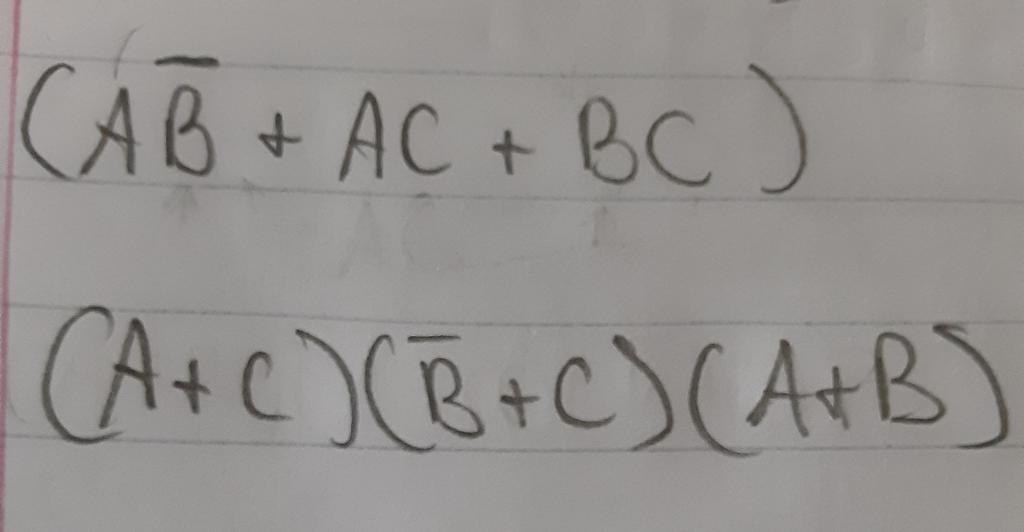 (AB̅ + AC + BC)
(A+C)(B̅+C)(A+B)